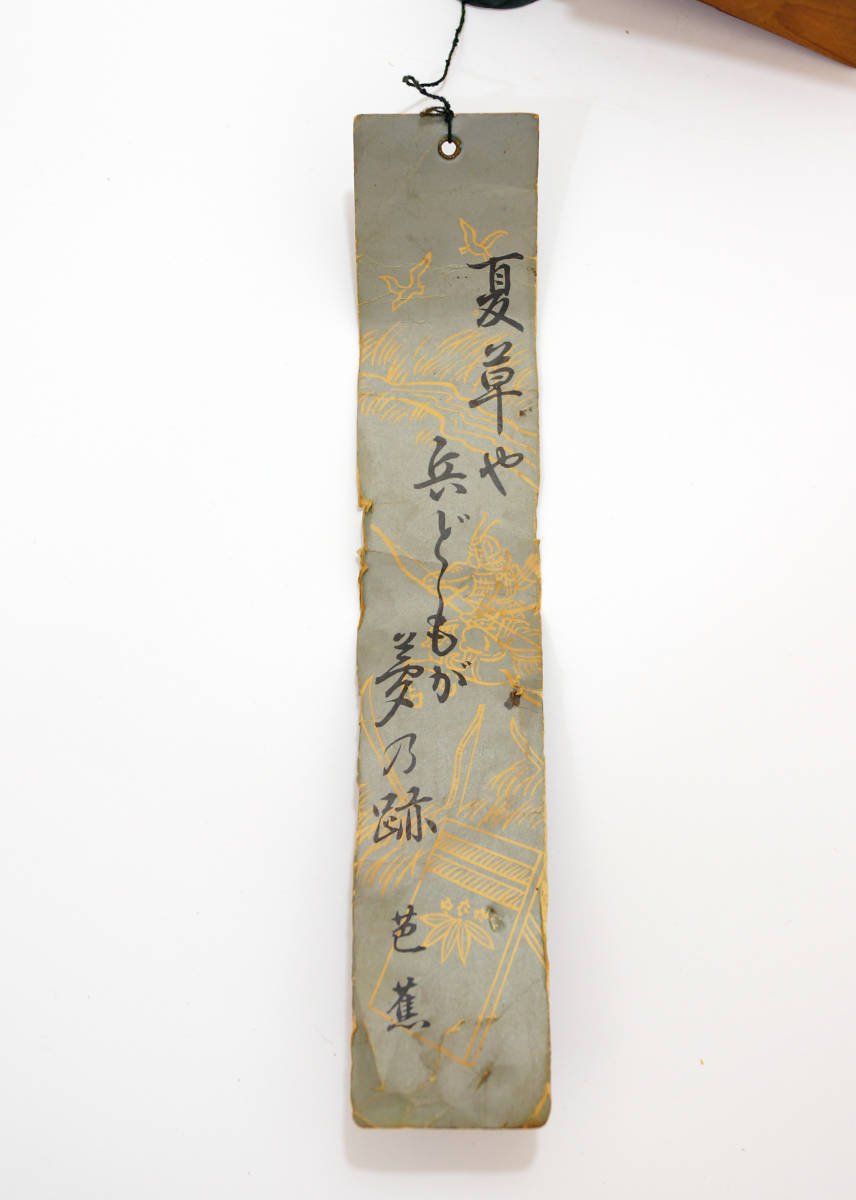 夏草や
兵どもが
夢乃跡
芭蕉